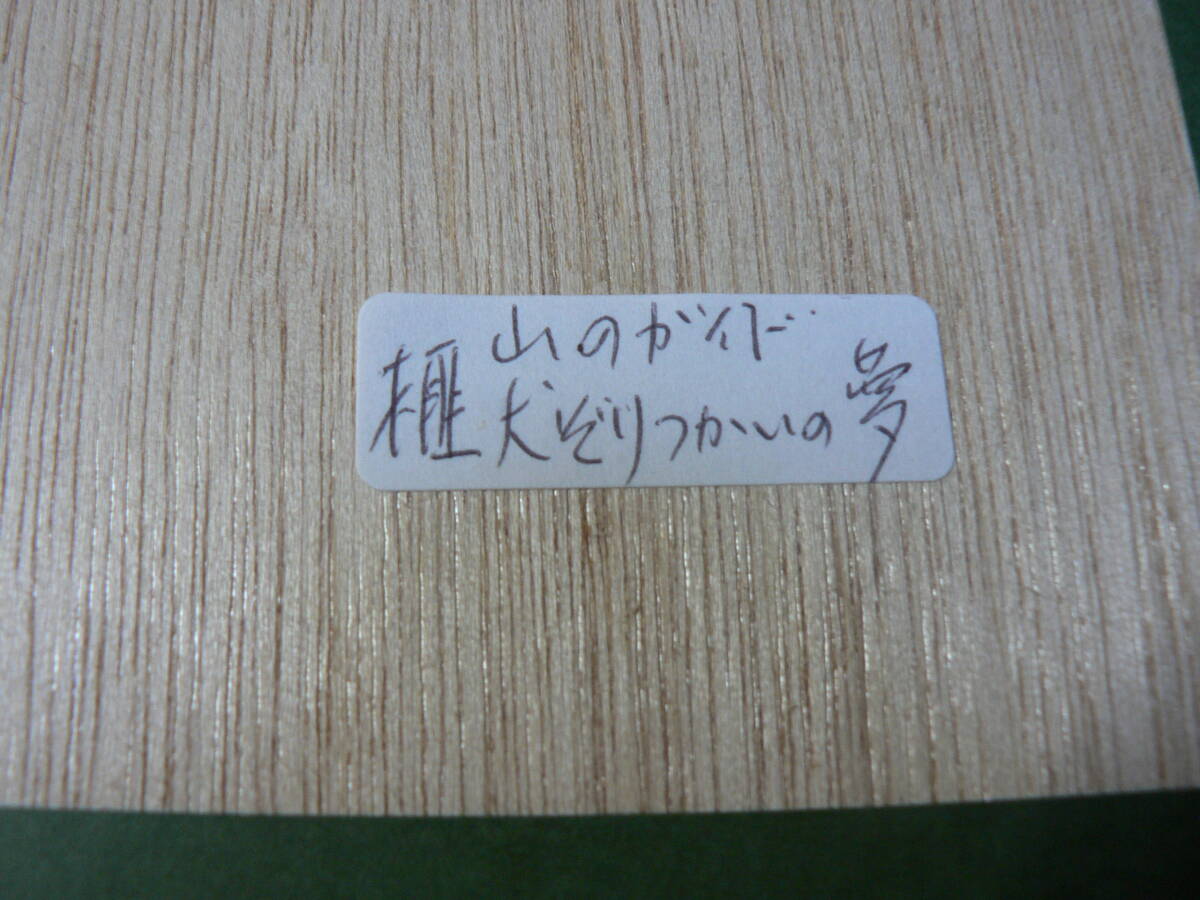 山のガイド
榧 犬ぞりつかいの夢